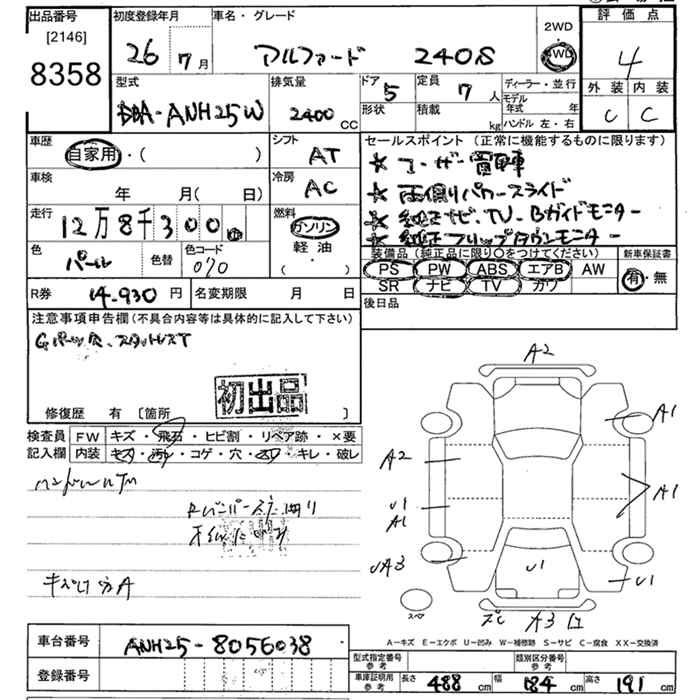 出品番号
[2146]
8358
初度登録年月
26 7月
車名・グレード
アルファード 240S
2WD
4WD
評価点
4
外装 内装
C C
型式
DBA-ANH25W
排気量
2400 CC
ドア
5
形状
定員
7人
積載
kg
ディーラー・並行
モデル年式 年
ハンドル 左・右
車歴
自家用・( )
シフト
AT
車検
年 月( 日)
冷房
AC
走行
12万8千300
燃料
ガソリン
軽油
( )
色
パール
色替
色コード
070
R券 14,930円
名変期限 月 日
セールスポイント (正常に機能するものに限ります)
★ユーザー買取車
★両側パワースライド
★純正ナビ、TV、Bガイドモニター
★純正フリップダウンモニター
装備品 (純正品に限り○をつけてください)
PS PW ABS エアB AW
SR ナビ TV カワ
新車保証書
有・無
後日品
注意事項申告欄(不具合内容等は具体的に記入して下さい)
初出品
修復歴 有 [箇所 ]
検査員記入欄
FW キズ・飛石・ヒビ割・リペア跡・×要
内装 キズ・汚れ・コゲ・穴・スレ・キレ・破レ
A2
A1
A2
A1
U1
A1
UA3
U1
U1
A3
スペア
A−キズ E−エクボ U−凹み W−補修跡 S−サビ C−腐食 XX−交換済
車台番号 ANH25-8056038
登録番号
型式指定番号 参考
類別区分番号 参考
車庫証明用 参考
長さ 488cm 幅 184cm 高さ 191cm